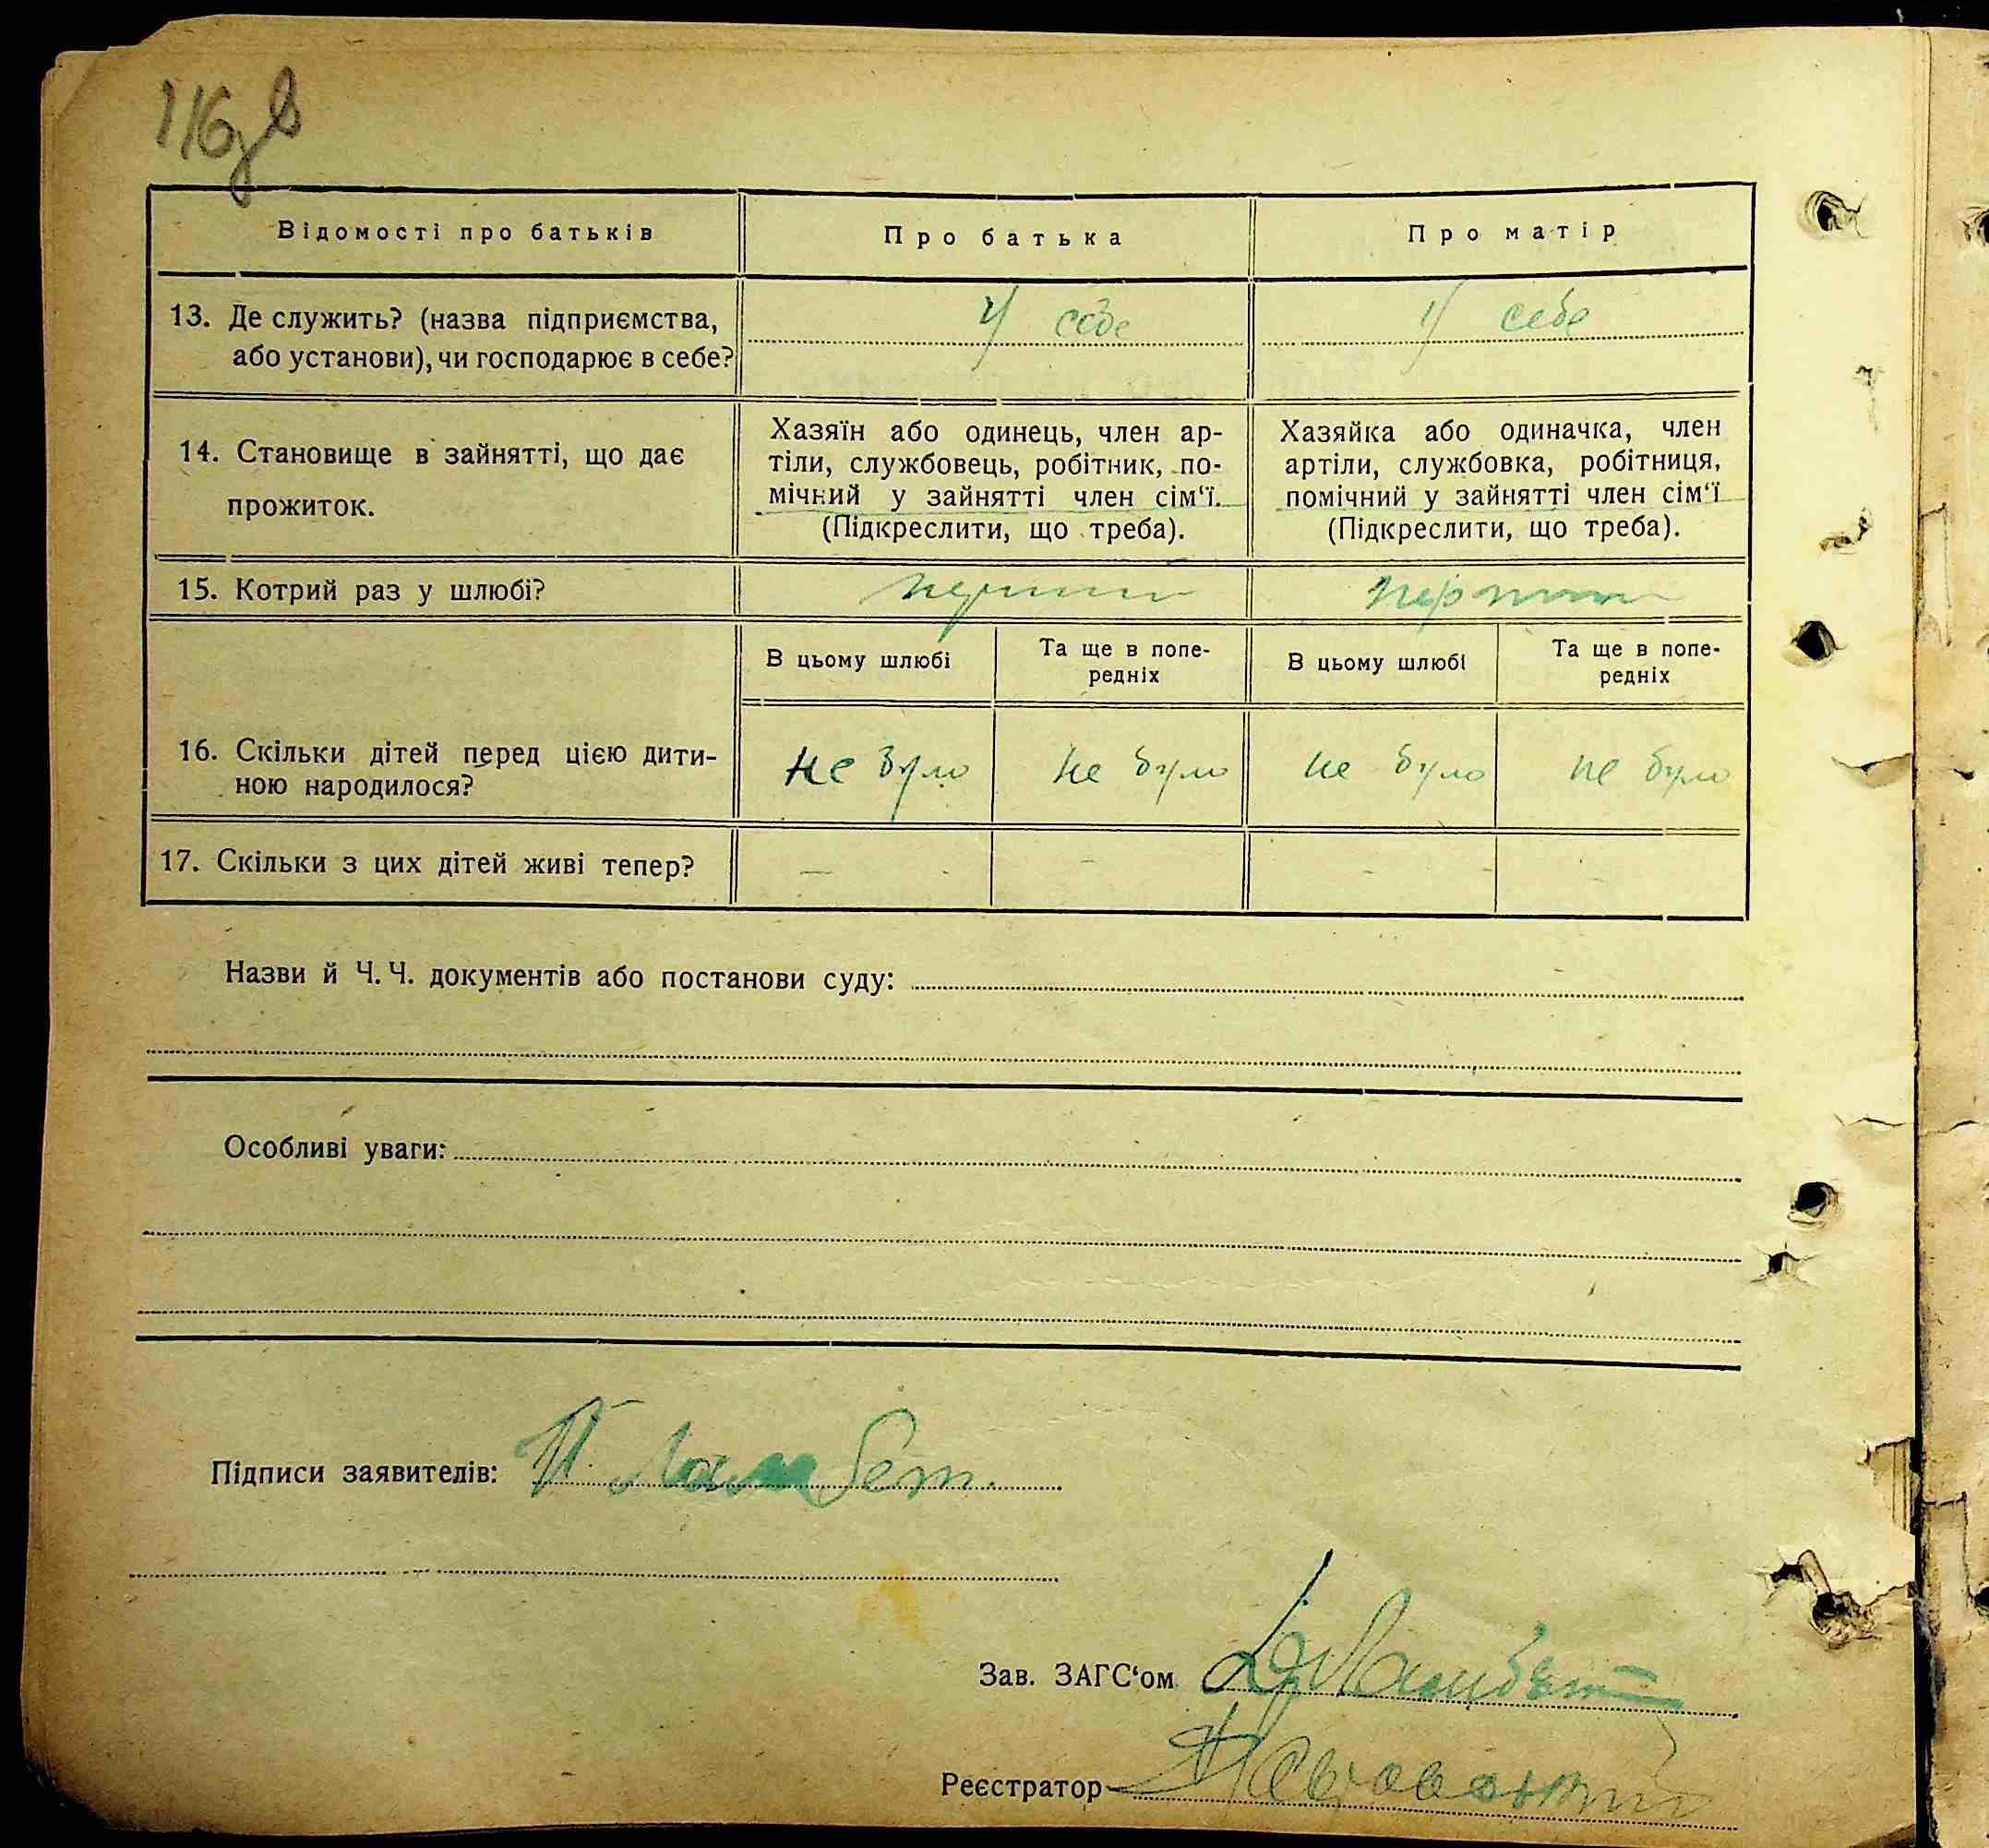 116зв
Відомості про батьків
Про батька
Про матір
13. Де служить? (назва підприємства,
або установи), чи господарює в себе?
у себе
у себе
14. Становище в зайнятті, що дає
прожиток.
Хазяїн або одинець, член ар-
тіли, службовець, робітник, по-
мічний у зайнятті член сім‘ї.
(Підкреслити, що треба).
Хазяйка або одиначка, член
артіли, службовка, робітниця,
помічний у зайнятті член сім‘ї
(Підкреслити, що треба).
15. Котрий раз у шлюбі?
перший
перший
В цьому шлюбі
Та ще в попе-
редніх
В цьому шлюбі
Та ще в попе-
редніх
16. Скільки дітей перед цією дити-
ною народилося?
не було
не було
не було
не було
17. Скільки з цих дітей живі тепер?
—
–
–
–
Назви й Ч. Ч. документів або постанови суду:
Особливі уваги:
Підписи заявителів: П. Ламбет.
Зав. ЗАГС‘ом
Реєстратор